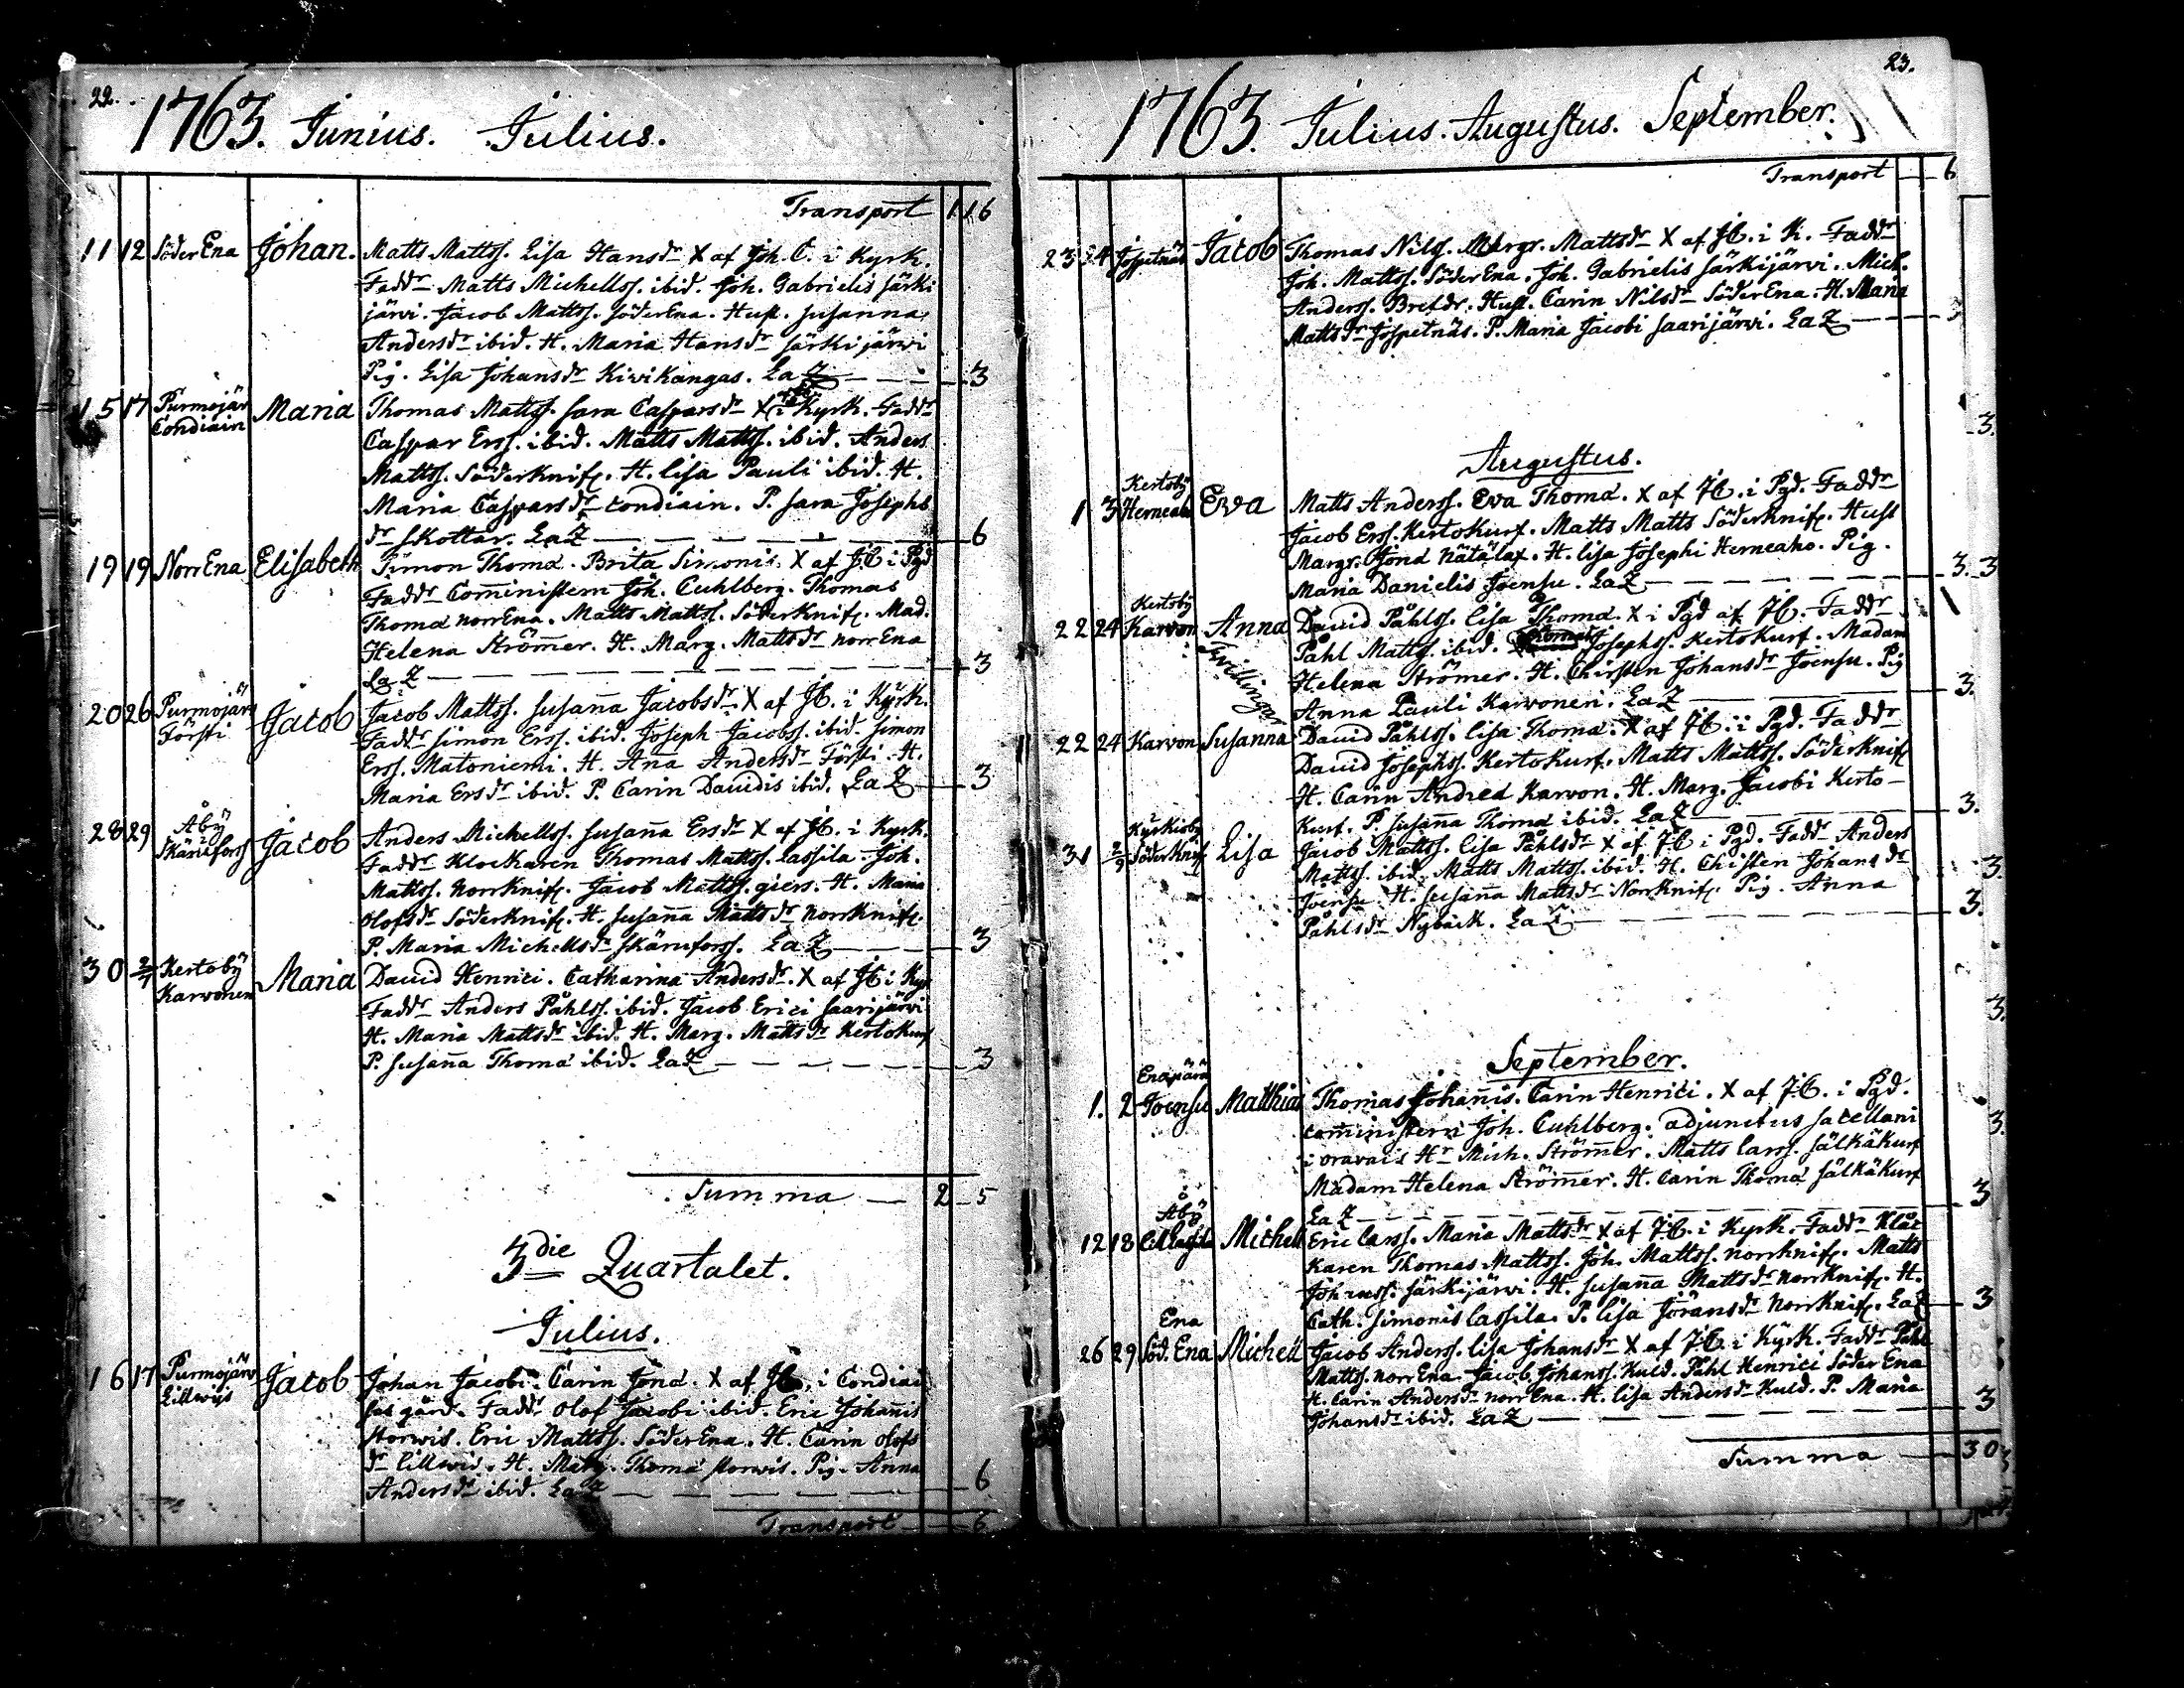 22.
1763. Junius. Julius.
Transport 1 16
11 12 Söder Ena Johan. Matts Mattss. Lisa Hansdr X af Joh. C. i Kyrk.
Faddr Matts Michellss. ibid. Joh. Gabrielis Särki
järvi. Jacob Mattss. SöderEna. Hust. Susanna
Andersdr ibid. H. Maria Hansdr Särkijärvi
Pig. Lisa Johansdr Kivikangas. LaZ 3
15 17 Purmojär Condiain Maria Thomas Mattss. Sara Caspersdr X i Kyrk. Faddr
Caspar Erss. ibid. Matts Mattss. ibid. Anders
Mattss. Söderknif. H. Lisa Pauli ibid. H.
Maria Caspersdr Condiain. P. Sara Josephs
dr Skottar. LaZ 6
19 19 Norr Ena Elisabeth Simon Thomæ. Brita Simonis. X af JC i Pgd
Faddr Com̅inistern Joh. Cuhlberg. Thomas
Thomæ norrEna. Matts Mattss. Söderknif. Mad.
Helena Ström̅er. H. Marg. Mattsdr norrEna
LaZ 3
20 26 Purmojär Försti Jacob Jacob Mattss. Susan̅a Jacobsdr X af JC. i Kyrk.
Faddr Simon Erss. ibid. Joseph Jacobss. ibid. Simon
Erss. Matoniemi. H. Ana Andersdr Försti. H.
Maria Ersdr ibid. P. Carin Davidis ibid. LaZ 3
28 29 Åbÿ Skärufors Jacob Anders Michellss. Susan̅a Ersdr X af JC. i Kyrk.
Faddr Klockaren Thomas Mattss. Lassila. Joh.
Mattss. Norrknif. Jacob Mattss. giers. H. Maria
Olofsdr Söderknif. H. Susan̅a Mattsdr Norrknif.
P. Maria Michellsdr Skäruforss. LaZ 3
30 2/7 Kertobÿ Karvonen Maria David Henrici. Catharina Andersdr. X af JC i Kyr
Faddr Anders Påhlss. ibid. Jacob Erici Saarijärvi
H. Maria Mattsdr ibid. H. Marg. Mattsdr Kertokurf
P. Susan̅a Thomæ ibid. LaZ 3
Summa 2 5
3die Quartalet.
Julius.
16 17 Purmojärv Lillwijs Jacob Johan Jacobi. Carin Jonæ. X af JC. i Condiai
gård. Faddr Olof Jacobi ibid. Eric Johan̅is
Storwis. Eric Mattss. SöderEna. H. Carin Olofs
dr Lillwis. H. Marg. Thomæ Storwis. Pig. Anna
Andersdr ibid. LaZ 6
Transport 6
23.
1763. Julius. Augustus. September.
Transport 6
23 24 Jospetnäs Jacob Thomas Nilss. Margr. Mattsdr X af JC. i K. Faddr
Joh. Mattss. SöderEna. Joh. Gabrielis Särkijärvi. Mich.
Anderss. Hust. Carin Nilsdr SöderEna. H. Maria
Mattsdr Jospetnäs. P. Maria Jacobi Saarijärvi. LaZ
3.
Augustus.
1 3 Kertobÿ Herneaho Eva Matts Anderss. Eva Thomæ. X af JC. i Pgd. Faddr
Jacob Erss. Kertokurf. Matts Matts Söderknif. Hust
Margr. Jonæ Nätälax. H. Lisa Josephi Herneaho. Pig.
Maria Danielis Joensu. LaZ 3 3
22 24 Kertobÿ Karvon Anna David Påhlss. Lisa Thomæ. X i Pgd af JC. Faddr
Påhl Mattss. ibid. Thomas Josephss. Kertokurf. Madam
Helena Strömer. H. Chirsten Johansdr Joensu. Pig
Anna Pauli Karvonen. LaZ 3.
Tvillingar
22 24 Karvon Susanna David Påhlss. Lisa Thomæ. X af JC. i Pgd. Faddr
David Josephss. Kertokurf. Matts Mattss. Söderknif
H. Carin Andreæ Karvon. H. Marg. Jacobi Kerto-
kurf. P. Susan̅a Thomæ ibid. LaZ 3.
31 2/9 Kÿrkiobÿ Söderknif Lisa Jacob Mattss. Lisa Påhlsdr X af JC i Pgd. Faddr Anders
Mattss. ibid. Matts Mattss. ibid. H. Chisten Johansdr 3
Joensu. H. Susan̅a Mattsdr Norrknif. Pig. Anna
Påhlsdr Nybäck. LaZ 3.
3.
September.
1. 2 Enäpärä Joensu Matthias Thomas Johan̅is. Carin Henrici. X af JC. i Pgd.
Com̅inistern Joh. Cuhlberg. adjunctus Sacellani 3.
i Oravais Hr Mich. Ström̅er. Matts Larss. Sälkäkurf
Madam Helena Ström̅er. H. Carin Thomæ Sälkäkurf
LaZ 3
12 18 Åbÿ Lillassila Michell Eric Larss. Maria Mattsdr X af JC. i Kyrk. Faddr Klåc
karen Thomas Mattss. Joh. Mattss. Norrknif. Matts
Johanss. Särkijärvi. H. Susan̅a Mattsdr Norrknif. H.
Cath. Simonis Lassila. P. Lisa Joransdr Norrknif. LaZ 3
26 29 Ena Söd. Ena Michell Jacob Anderss. Lisa Johansdr X af JC. i Kÿrk. Faddr Påhl
Mattss. norrEna. Jacob Johanss. Kuld. Påhl Henrici SöderEna
H. Carin Andersdr norrEna. H. Lisa Andersdr Kuld. P. Maria
Johansdr ibid. LaZ 3
Summa 30